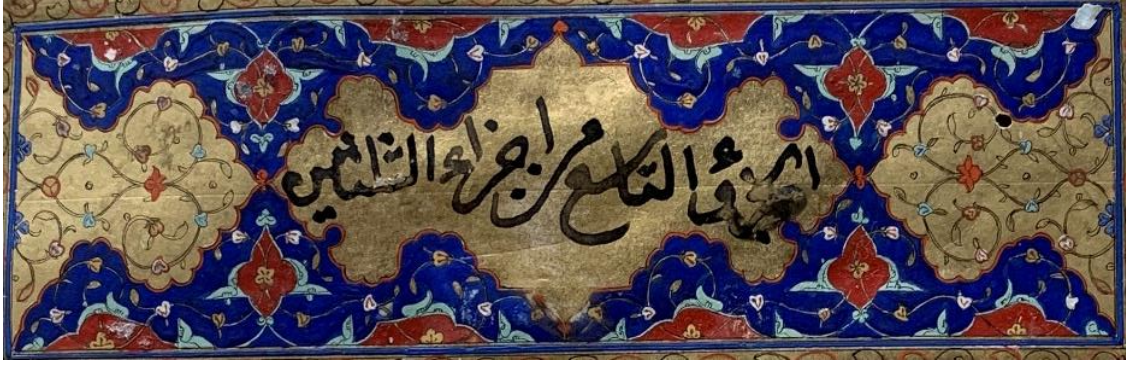 الجزؤ التاسع من اجزاء الثلثين